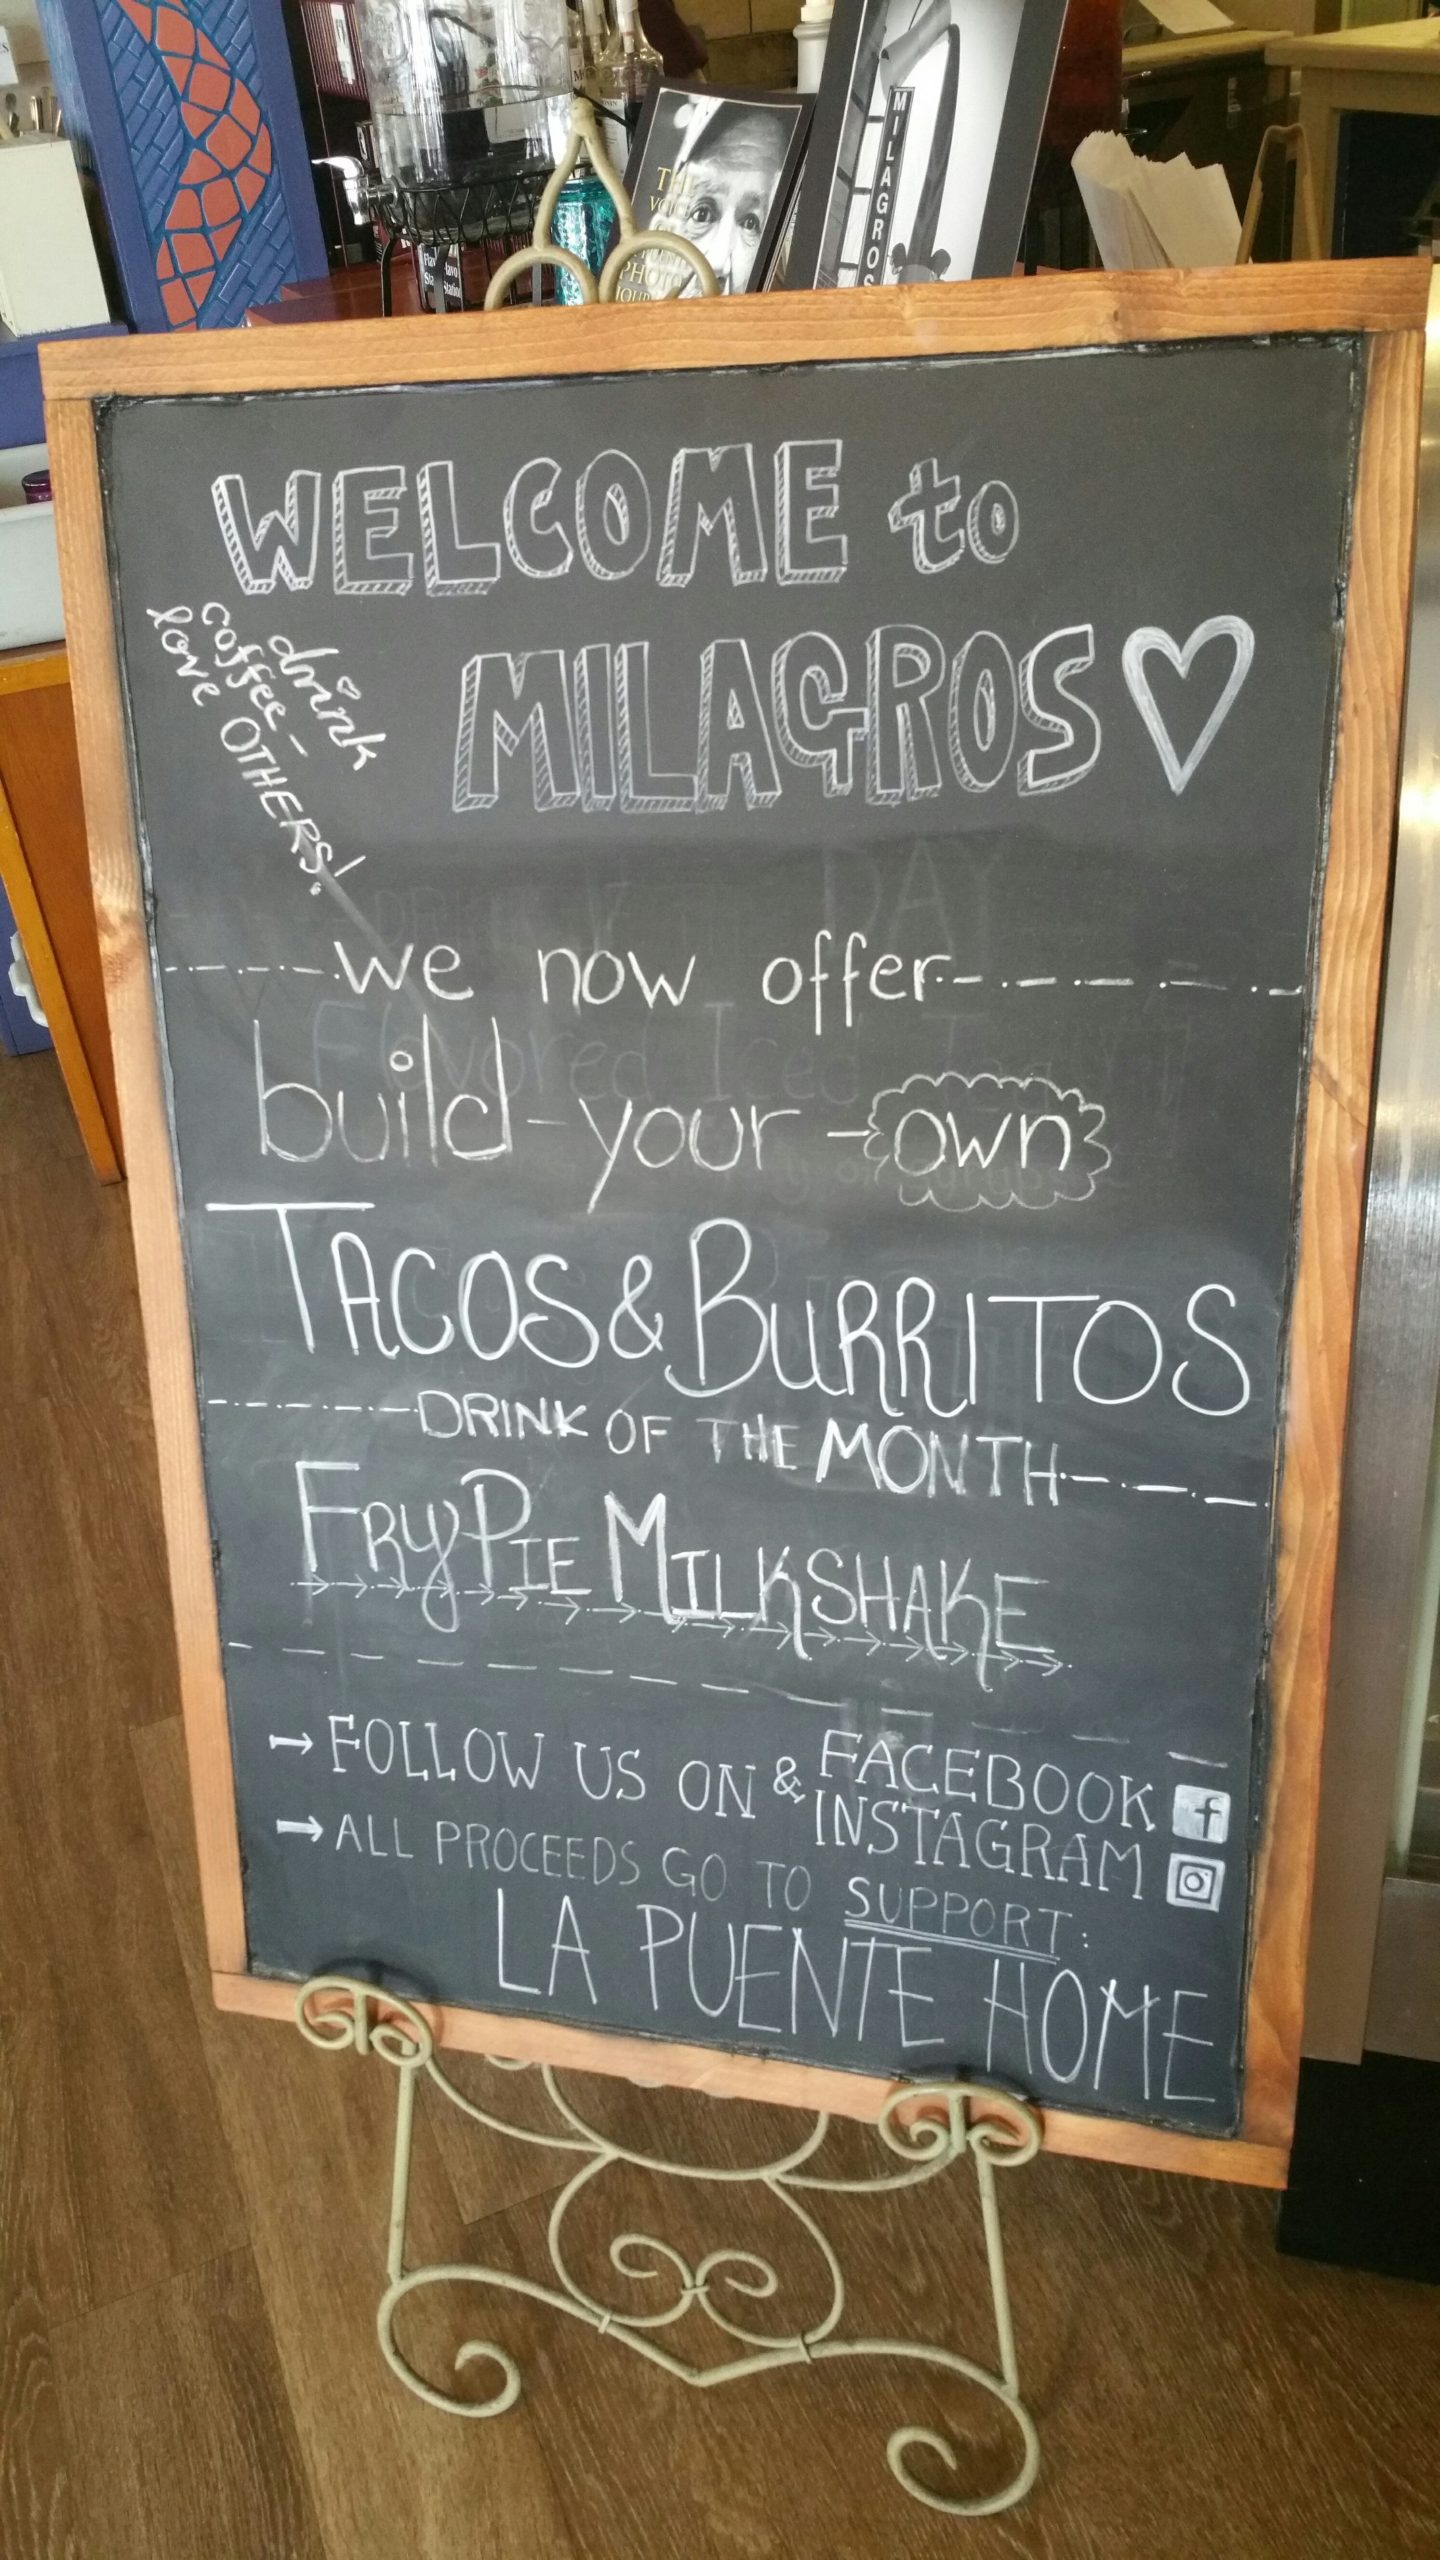 THE
VOICE
PHOTO
MILAGROS
WELCOME to
MILAGROS
drink
coffee-
love OTHERS!
we now offer
build-your-own
TACOS & BURRITOS
DRINK OF THE MONTH
FRY PIE MILKSHAKE
FOLLOW US ON & FACEBOOK
INSTAGRAM
ALL PROCEEDS GO TO SUPPORT:
LA PUENTE HOME